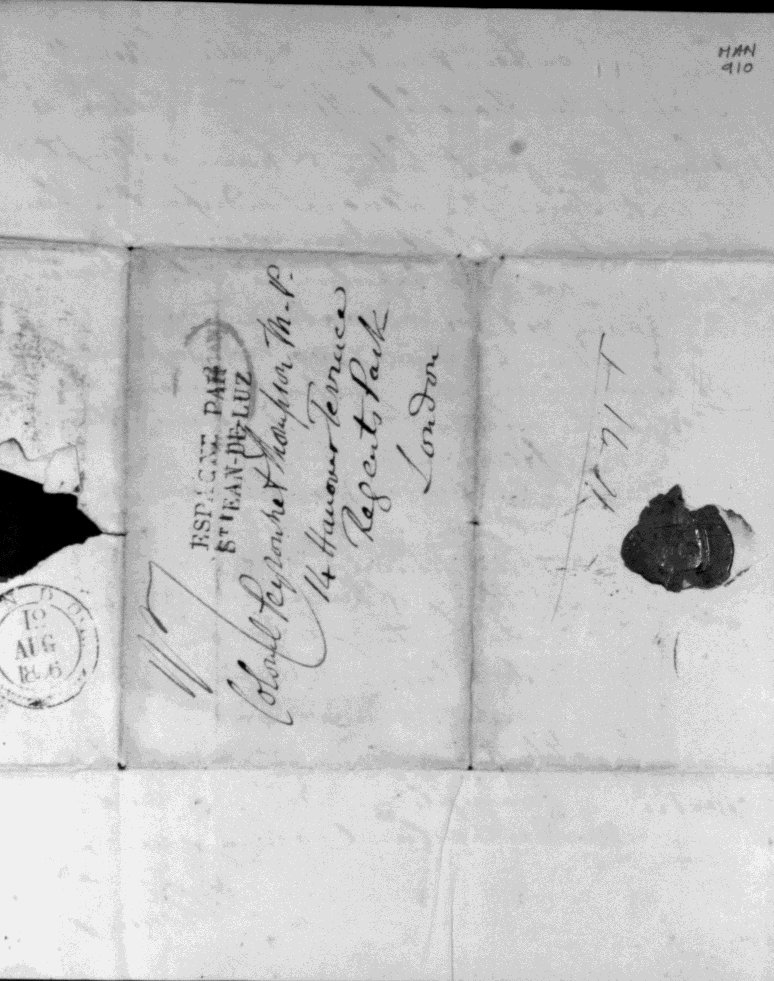 MAN
910
ESPAGNE PAR
ST JEAN-DE-LUZ
Colonel Peyronnet Thompson M.P.
14 Hanover Terrace
Regents Park
London
19
AUG